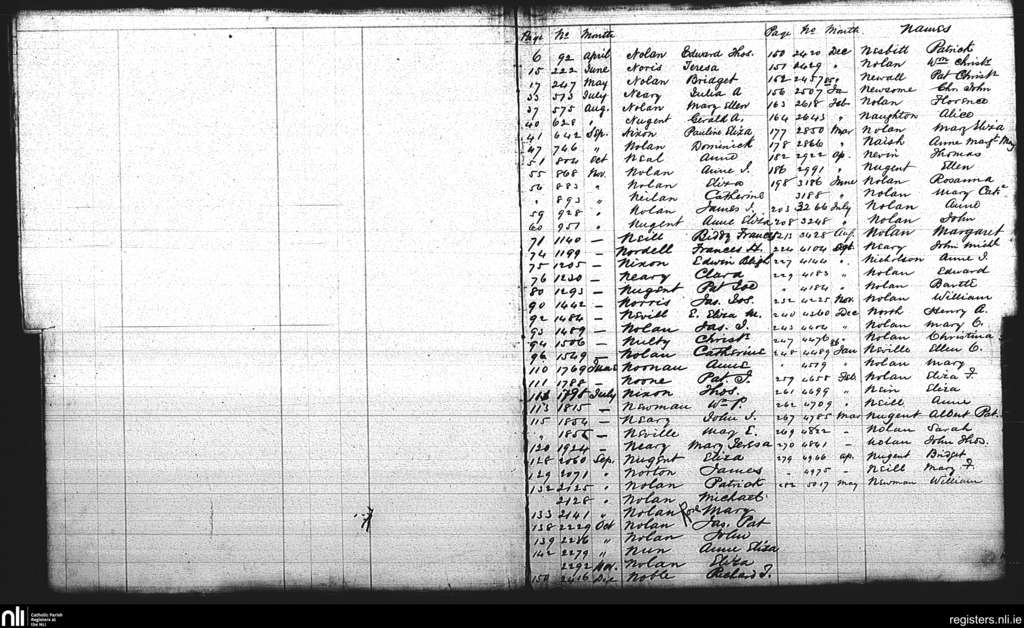 Page No Month
6 92 April Nolan Edward Thos.
15 222 June Noris Teresa
17 247 May Nolan Bridget
33 513 July Neary Julia A
37 575 Aug. Nolan Mary Ellen
40 628 " Nugent Gerald A.
41 642 Sep. Nixon Pauline Eliza
47 746 " Nolan Dominick
51 804 Oct Neal Anne
55 868 Nov. Nolan Anne J.
56 883 " Nolan Eliza
" 893 " Neilan Catherine
59 928 " Nolan James J.
60 951 " Nugent Anne Eliza
71 1140 — Neill Biddy Frances
74 1199 — Nordell Frances H.
75 1205 — Nixon Edwin Bligh
76 1230 — Neary Clara
80 1293 — Nugent Pat Joe
90 1442 — Norris Jas. Jos.
92 1484 — Nevill E. Eliza M.
93 1489 — Nolan Jas. J.
94 1506 — Nulty Christr
96 1529 — Nolan Catherine
110 1769 June Noonan Anne
111 1788 — Noone Pat. J.
1798 July Nixon Thos.
113 1815 — Newman Wm P.
115 1854 — Neary John J.
" 1855 — Neville May E.
120 1924 — Neary Mary Teresa
128 2060 Sep. Nugent Eliza
129 2071 " Norton James
132 2125 " Nolan Patrick
2128 " Nolan Michael
133 2141 " Nolan Rose Mary
138 2229 Oct Nolan Jas. Pat
139 2236 " Nolan John
142 2279 " Nun Anne Eliza
2292 Nov. Nolan Eliza
150 2416 Dec Noble Richard J.
Page No Month Names
150 2420 Dec Nesbitt Patrick
151 2429 " Nolan Wm Christr
152 2457 Newall Pat Christr
156 2507 Ja Newcome Chr. John
163 2618 Feb. Nolan Florence
164 2643 " Naughton Alice
177 2850 Mar Nolan Mary Eliza
178 2866 " Naish Anne Margt May
182 2922 Ap. Nevin Thomas
186 2991 " Nugent Ellen
198 3186 June Nolan Rosanna
3188 " Nolan Mary Cath
203 3266 July Nolan Anne
208 3248 " Nolan John
213 3428 Aug. Nolan Margaret
224 4104 Sept Neary John Michl
227 4144 " Nicholson Anne J.
229 4183 " Nolan Edward
" 4184 " Nolan Bartle
232 4225 Nov. Nolan William
240 4360 Dec North Henry A.
243 4404 " Nolan Mary C.
247 4476 " Nolan Christina
248 4489 Jan Neville Ellen C.
" 4519 " Nolan Mary
259 4658 Feb. Nolan Eliza F.
261 4699 " Nein Eliza
262 4709 " Neill Anne
267 4785 Mar Nugent Albert Pat.
269 4832 — Nolan Sarah
270 4841 — Nolan John Thos.
279 4946 Ap. Nugent Bridget
— 4975 — Neill Mary F.
282 5017 May Newman William
nli Catholic Parish Registers at the NLI
registers.nli.ie